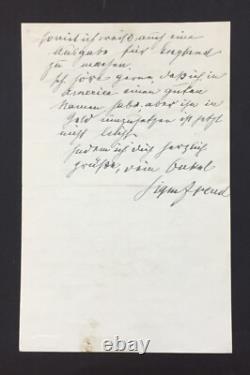 soviel ich weiß auch eine
Ausgabe für England
zu machen.
Ich höre gerne, daß ich in
America einen guten
Namen habe, aber ihn in
Geld umzusetzen ist jetzt
nicht leicht.
Indem ich dich herzlich
grüße, dein Onkel
Sigm Freud
hibid.com